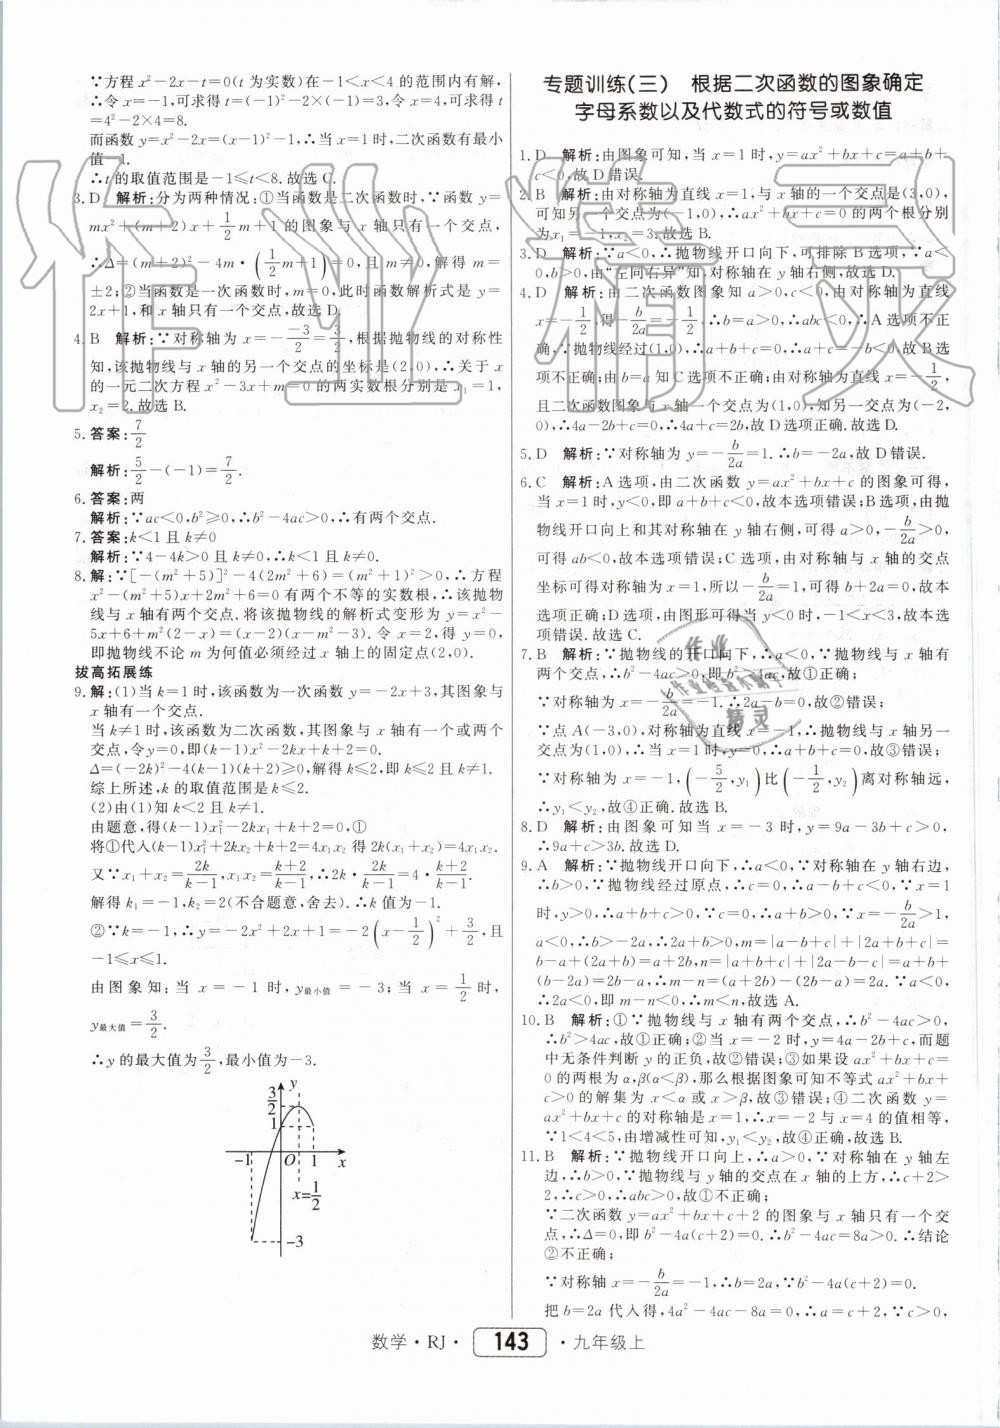 ∵方程 x²-2x-t=0(t 为实数)在-1<x<4 的范围内有解,
∴令 x=-1,可求得 t=(-1)²-2×(-1)=3,令 x=4,可求得 t
=4²-2×4=8.
而函数 y=x²-2x=(x-1)²-1,当 x=1 时,二次函数有最小
值-1.
∴t 的取值范围是-1≤t<8.故选 C.
3. D 解析:分为两种情况:①当函数是二次函数时,∵函数 y=
mx²+(m+2)x+1/2m+1 的图象与 x 轴只有一个交点,
∴Δ=(m+2)²-4m·(1/2m+1)=0,且 m≠0,解得 m=
±2;②当函数是一次函数时,m=0,此时函数解析式是 y=
2x+1,和 x 轴只有一个交点,故选 D.
4. B 解析:∵对称轴为 x=-(-3)/2=3/2,根据抛物线的对称性
知,该抛物线与 x 轴的另一个交点的坐标是(2,0),∴关于 x
的一元二次方程 x²-3x+m=0 的两实数根分别是 x₁=1,
x₂=2.故选 B.
5. 答案:7/2
解析:5/2-(-1)=7/2.
6. 答案:两
解析:∵ac<0,b²≥0,∴b²-4ac>0,∴有两个交点.
7. 答案:k<1 且 k≠0
解析:∵4-4k>0 且 k≠0,∴k<1 且 k≠0.
8. 解:∵[-(m²+5)]²-4(2m²+6)=(m²+1)²>0,∴方程
x²-(m²+5)x+2m²+6=0 有两个不等的实数根,∴该抛物
线与 x 轴有两个交点.将该抛物线的解析式变形为 y=x²-
5x+6+m²(2-x)=(x-2)(x-m²-3).令 x=2,得 y=0,
即抛物线不论 m 为何值必须经过 x 轴上的固定点(2,0).
拔高拓展练
9. 解:(1)当 k=1 时,该函数为一次函数 y=-2x+3,其图象与
x 轴有一个交点.
当 k≠1 时,该函数为二次函数,其图象与 x 轴有一个或两个
交点,令 y=0,即(k-1)x²-2kx+k+2=0.
Δ=(-2k)²-4(k-1)(k+2)≥0,解得 k≤2,即 k≤2 且 k≠1.
综上所述,k 的取值范围是 k≤2.
(2)由(1)知 k<2 且 k≠1.
由题意,得(k-1)x₁²-2kx₁+k+2=0,①
将①代入(k-1)x₁²+2kx₂+k+2=4x₁x₂ 得 2k(x₁+x₂)=4x₁x₂.
又∵x₁+x₂=2k/(k-1),x₁x₂=(k+2)/(k-1),∴2k·2k/(k-1)=4·(k+2)/(k-1).
解得 k₁=-1,k₂=2(不合题意,舍去).∴k 值为-1.
②∵k=-1,∴y=-2x²+2x+1=-2(x-1/2)²+3/2,且
-1≤x≤1.
由图象知:当 x=-1 时,y最小值=-3;当 x=1/2 时,
y最大值=3/2.
∴y 的最大值为3/2,最小值为-3.
y
3/2
1
-1 O 1 x
x=1/2
-3
专题训练(三) 根据二次函数的图象确定
字母系数以及代数式的符号或数值
1. D 解析:由图象可知,当 x=1 时,y=ax²+bx+c=a+b+
c<0,故 D 错误.
2. B 解析:由对称轴为直线 x=1,与 x 轴的一个交点是(3,0),
可知另一个交点为(-1,0),∴ax²+bx+c=0 的两个根分别
为 x₁=-1,x₂=3.故选 B.
3. D 解析:∵a<0,∴抛物线开口向下,可排除 B 选项,∵a<
0,b>0,由“左同右异”知对称轴在 y 轴右侧,故选 D.
4. D 解析:由二次函数图象知 a>0,c<0,由对称轴为直线
x=-1/2,得-b/2a=-1/2,∴b=a>0,∴abc<0,∴A 选项不正
确,∵抛物线经过(1,0),∴a+b+c=0,∴a+c=-b<0,故 B 选
项不正确;由 b=a 知 C 选项不正确;由对称轴为直线 x=-1/2,
且二次函数图象与 x 轴一个交点为(1,0),知另一交点为(-2,
0),∴4a-2b+c=0,∴4a+c=2b,故 D 选项正确.故选 D.
5. D 解析:∵对称轴为 y=-b/2a=1.∴b=-2a,故 D 错误.
6. C 解析:A 选项,由二次函数 y=ax²+bx+c 的图象可得,
当 x=1 时,y<0,即 a+b+c<0,故本选项错误;B 选项,由抛
物线开口向上和其对称轴在 y 轴右侧,可得 a>0,-b/2a>0,
可得 ab<0,故本选项错误;C 选项,由对称轴与 x 轴的交点
坐标可得对称轴为 x=1,所以-b/2a=1,可得 b+2a=0,故本
选项正确;D 选项,由图形可得当 y<0 时,-1<x<3,故本选
项错误.故选 C.
7. B 解析:∵抛物线的开口向下,∴a<0,∵抛物线与 x 轴有
两个交点,∴b²-4ac>0,即 b²>4ac,故①正确;
∵对称轴为 x=-b/2a=-1.∴2a-b=0,故②错误;
∵点 A(-3,0),对称轴为直线 x=-1,∴抛物线与 x 轴另一
交点为(1,0),∴当 x=1 时,y=0,∴a+b+c=0,故③错误;
∵对称轴为 x=-1,(-5/2,y₁)比(-1/2,y₂)离对称轴远,
∴y₁<y₂,故④正确.故选 B.
8. D 解析:由图象可知当 x=-3 时,y=9a-3b+c>0,
∴9a+c>3b.故选 D.
9. A 解析:∵抛物线开口向下,∴a<0,∵对称轴在 y 轴右边,
∴b>0,∵抛物线经过原点,∴c=0,∴a-b+c<0,∵x=1
时,y>0,∴a+b+c>0,∵c=0,∴a+b>0,∵x=-b/2a>1,
a<0,∴b>-2a,∴2a+b>0,m=|a-b+c|+|2a+b+c|=
b-a+(2a+b)=a+2b,n=|a+b+c|+|2a-b-c|=a+b+
(b-2a)=2b-a,∴m-n=(a+2b)-(2b-a)=2a.∵a<0,
∴2a<0,即 m-n<0,∴m<n,故选 A.
10. B 解析:①∵抛物线与 x 轴有两个交点,∴b²-4ac>0,
∴b²>4ac,故①正确;②当 x=-2 时,y=4a-2b+c,而题
中无条件判断 y 的正负,故②错误;③如果设 ax²+bx+c=0
的两根为 α,β(α<β),那么根据图象可知不等式 ax²+bx+c
>0 的解集为 x<α 或 x>β,故③错误;④二次函数 y=
ax²+bx+c 的对称轴是 x=1,∴x=-2 与 x=4 的值相等,
∵1<4<5,由增减性可知,y₁<y₂,故④正确.故选 B.
11. B 解析:∵抛物线开口向上,∴a>0,∵对称轴在 y 轴左
边,∴b>0,∵抛物线与 y 轴的交点在 x 轴的上方,∴c+2>
2,∴c>0,∴abc>0,故①不正确;
∵二次函数 y=ax²+bx+c+2 的图象与 x 轴只有一个交
点,∴Δ=0,即 b²-4a(c+2)=0.∴b²-4ac=8a>0.∴结论
②不正确;
∵对称轴 x=-b/2a=-1,∴b=2a,∵b²-4a(c+2)=0.
把 b=2a 代入得,4a²-4ac-8a=0,∴a=c+2.∵c>0,
数学·RJ· 143 ·九年级上
作业精灵
作业
作业检查小助手
精灵